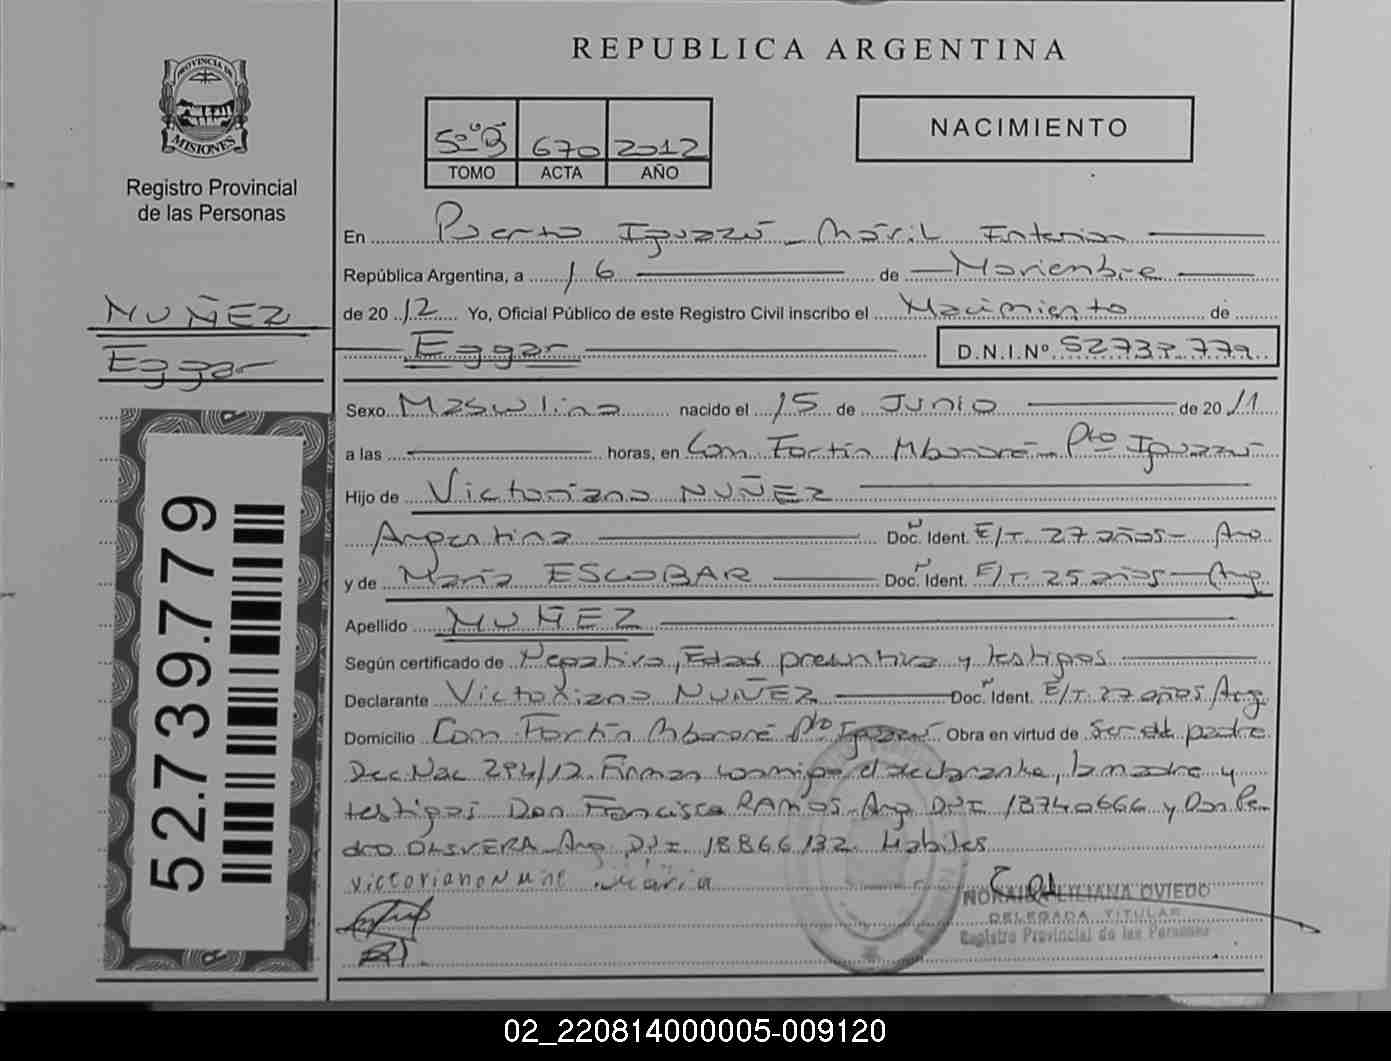 REPUBLICA ARGENTINA
PROVINCIA DE
MISIONES
Registro Provincial
de las Personas
5º "B" 670 2012
TOMO ACTA AÑO
NACIMIENTO
En Puerto Iguazú - Móvil Interior
República Argentina, a 16 de Noviembre
de 2012 Yo, Oficial Público de este Registro Civil inscribo el Nacimiento de
Eggar D.N.I.Nº 52739.779
NUÑEZ
Eggar
52.739.779
Sexo Masculino nacido el 15 de Junio de 2011
a las horas, en Com Fortín Mbororé - Pto Iguazú
Hijo de Victoriano NUÑEZ
Argentina Doc. Ident. E/T. 27 años - Arg
y de María ESCOBAR Doc. Ident. E/T. 25 años - Arg
Apellido NUÑEZ
Según certificado de Negativo, Edad presuntiva y testigos
Declarante Victoriano NUÑEZ Doc. Ident. E/T. 27 años Arg
Domicilio Com Fortín Mbororé Pto Iguazú Obra en virtud de Ser el padre
Dec. Nac 294/12. Firman conmigo el declarante, la madre y
testigos Don Francisco RAMOS - Arg DNI 13740666 y Don Pe-
dro OLIVERA - Arg DNI 18866132. Habiles
victoriano Nune Maria
NORAIDA LILIANA OVIEDO
DELEGADA TITULAR
Registro Provincial de las Personas
02_220814000005-009120